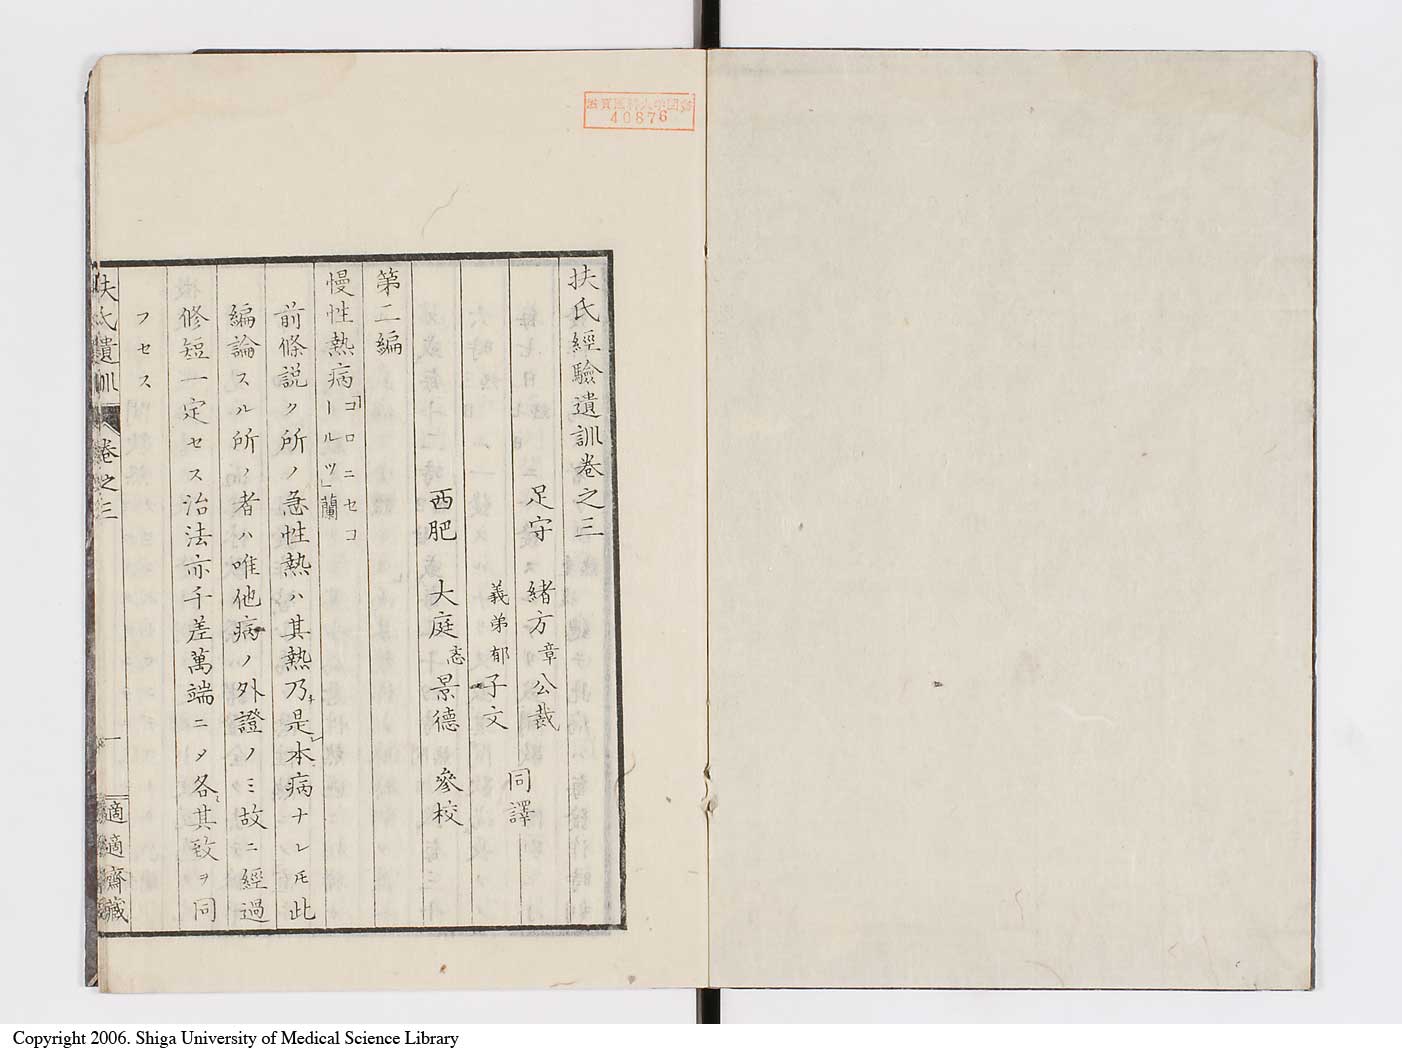 滋賀医科大学図書
40876
扶氏經驗遺訓卷之三
足守 緒方章公裁
同譯
義弟郁子文
西肥 大庭忞景德 參校
第二編
慢性熱病「コロニセコールツ」蘭
前條説ク所ノ急性熱ハ其熱乃チ是レ本病ナレ𪜈此
編論スル所ノ者ハ唯他病ノ外證ノミ故ニ經過
修短一定セス治法亦千差萬端ニメ各〻其致ヲ同
フセス
扶氏遺訓 卷之三
一
適適齋藏
Copyright 2006. Shiga University of Medical Science Library